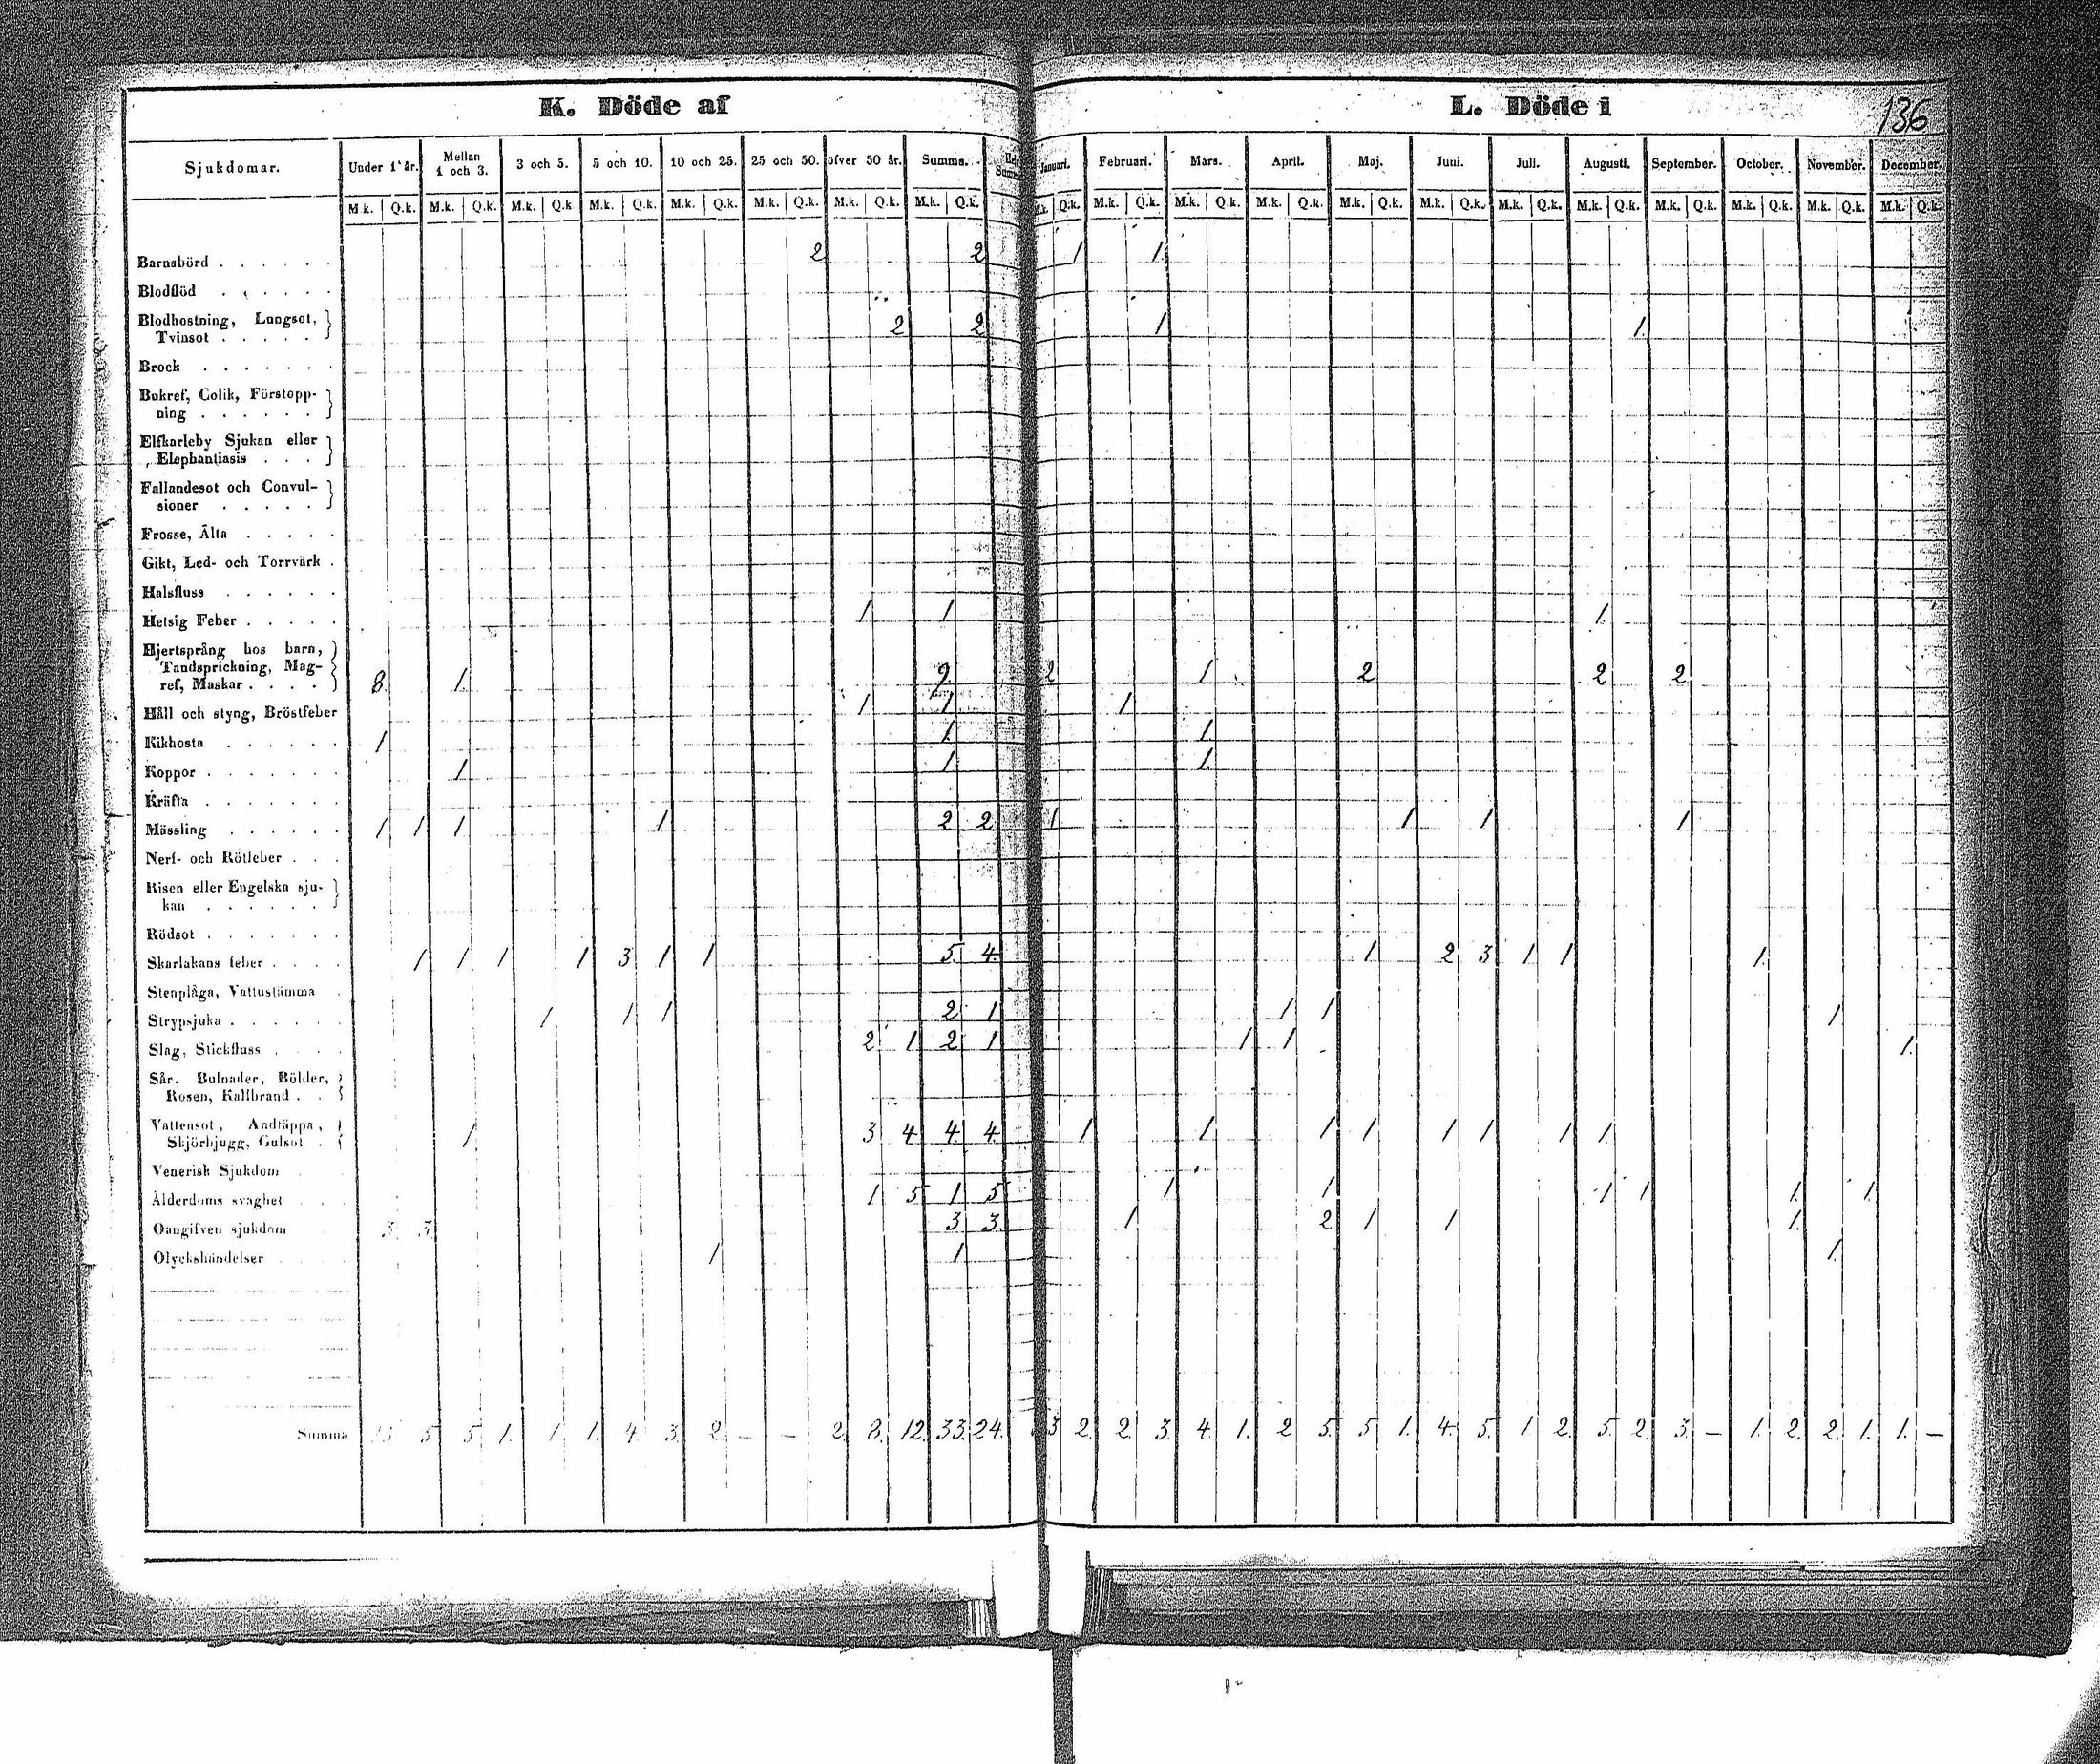 K. Döde af L. Döde i 136
Sjukdomar. Under 1 år. Mellan 1 och 3. 3 och 5. 5 och 10. 10 och 25. 25 och 50. öfver 50 år. Summa. Januari. Februari. Mars. April. Maj. Juni. Juli. Augusti. September. October. November. December.
M.k. Q.k. M.k. Q.k. M.k. Q.k M.k. Q.k. M.k. Q.k. M.k. Q.k. M.k. Q.k. M.k. Q.k. M.k. Q.k. M.k. Q.k. M.k. Q.k. M.k. Q.k. M.k. Q.k. M.k. Q.k. M.k. Q.k. M.k. Q.k. M.k. Q.k. M.k. Q.k. M.k. Q.k. M.k. Q.k.
Barnsbörd . . . . . . 2 2 1 1
Blodflöd . . . . . .
Blodhostning, Lungsot,
Tvinsot . . . . . 2 2 1 1
Brock . . . . . . .
Bukref, Colik, Förstopp-
ning . . . . . .
Elfkarleby Sjukan eller
Elephantiasis . . .
Fallandesot och Convul-
sioner . . . . .
Frosse, Älta . . . . .
Gikt, Led- och Torrvärk .
Halsfluss . . . . . .
Hetsig Feber . . . . . 1 1 1
Hjertsprång hos barn,
Tandsprickning, Mag-
ref, Maskar . . . . 8 1 9 2 1 2 2 2
Håll och styng, Bröstfeber 1 1 1
Kikhosta . . . . . . 1 1 1
Koppor . . . . . . . 1 1 1
Kräfta . . . . . . .
Mässling . . . . . . 1 1 1 1 2 2 1 1 1 1
Nerf- och Rötfeber . . .
Risen eller Engelska sju-
kan . . . . . .
Rödsot . . . . . . .
Skarlakans feber . . . . 1 1 1 1 3 1 1 5 4 1 2 3 1 1 1
Stenplåga, Vattustämma .
Strypsjuka . . . . . . 1 1 1 2 1 1 1 1
Slag, Stickfluss . . . . 2 1 2 1 1 1 1
Sår, Bulnader, Bölder,
Rosen, Kallbrand . .
Vattensot, Andtäppa,
Skjörbjugg, Gulsot . 1 3 4 4 4 1 1 1 1 1 1 1 1
Venerisk Sjukdom
Ålderdoms svaghet . . . 1 5 1 5 1 1 1 1 1 1
Oangifven sjukdom 3 3 3 3 1 2 1 1 1
Olyckshändelser . . . . 1 1 1
Summa 13 5 5 1. 1 1. 4 3. 2 – – 2. 8. 12. 33. 24. 3 2. 2 3. 4. 1. 2 5. 5 1. 4. 5. 1 2. 5. 2. 3. – 1. 2. 2. 1. 1. –